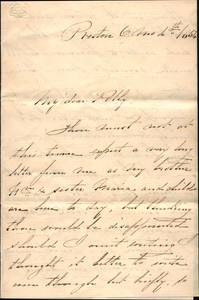 Preston 6 Mo 4th
My dear Polly
Thou must not at
this time expect a very long
letter from me as my brother
& sister Maria and children
are here to day, but thinking
thou would be disappointed
should I omit writing I
thought it better to write
even though but briefly, so